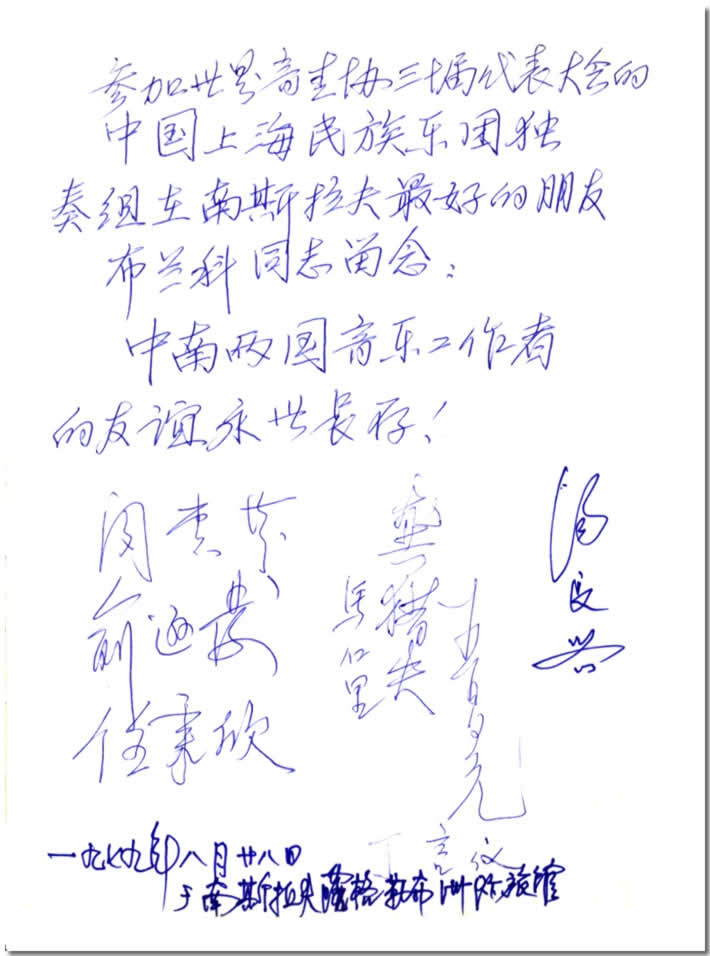 参加世界音青协三十届代表大会的
中国上海民族乐团独
奏组在南斯拉夫最好的朋友
布兰科同志留念：
中南两国音乐工作者
的友谊永世長存！
闵惠芬
俞逊发
任秉欣
龚
馬仁里
汤良
丁言仪
一九七九年八月廿八日
于南斯拉夫薩格勒布洲际旅館